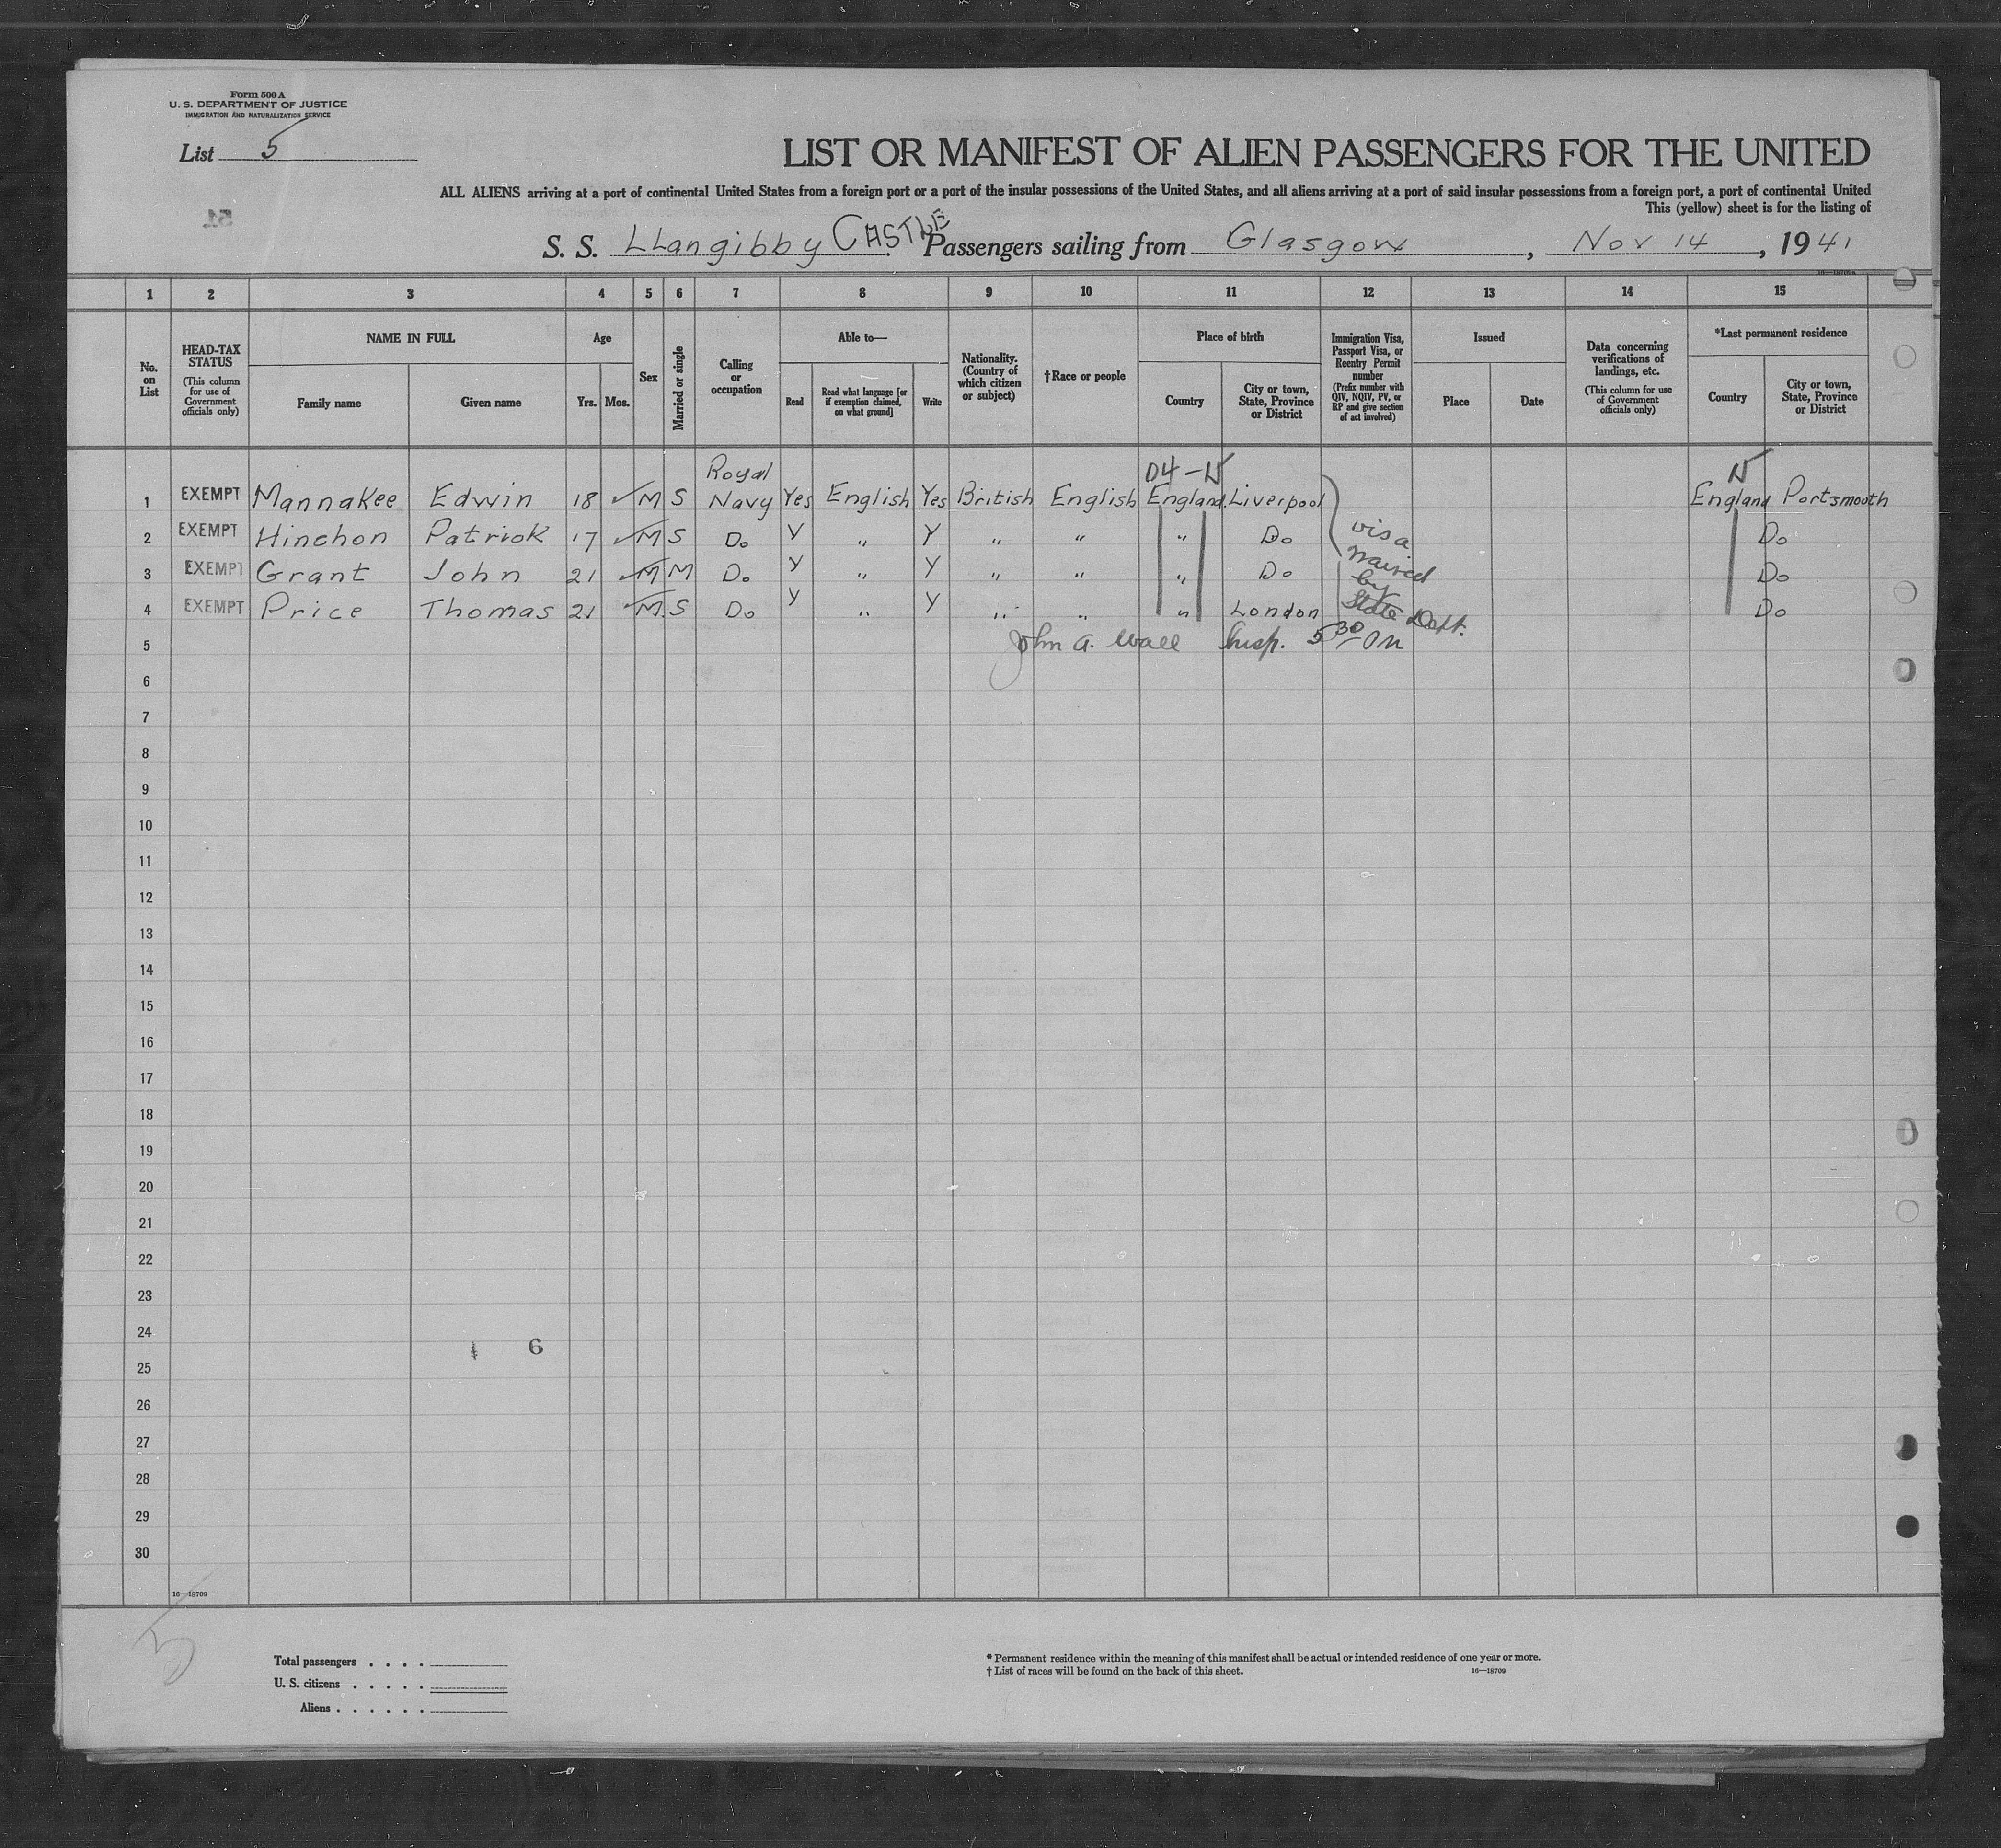 Form 500 A
U. S. DEPARTMENT OF JUSTICE
IMMIGRATION AND NATURALIZATION SERVICE
List 5
LIST OR MANIFEST OF ALIEN PASSENGERS FOR THE UNITED
ALL ALIENS arriving at a port of continental United States from a foreign port or a port of the insular possessions of the United States, and all aliens arriving at a port of said insular possessions from a foreign port, a port of continental United
This (yellow) sheet is for the listing of
51
S. S. LLangibby CASTLE Passengers sailing from Glasgow, Nov 14, 1941
16—18709a
1 2 3 4 5 6 7 8 9 10 11 12 13 14 15
No. on List
HEAD-TAX STATUS (This column for use of Government officials only)
NAME IN FULL
Family name Given name
Age
Yrs. Mos.
Sex
Married or single
Calling or occupation
Able to—
Read Read what language [or if exemption claimed, on what ground] Write
Nationality. (Country of which citizen or subject)
†Race or people
Place of birth
Country City or town, State, Province or District
Immigration Visa, Passport Visa, or Reentry Permit number (Prefix number with QIV, NQIV, PV, or RP and give section of act involved)
Issued
Place Date
Data concerning verifications of landings, etc. (This column for use of Government officials only)
*Last permanent residence
Country City or town, State, Province or District
04 –
1 EXEMPT Mannakee Edwin 18 M S Royal Navy Yes English Yes British English England Liverpool England Portsmouth
2 EXEMPT Hinchon Patrick 17 M S Do Y " Y " " " Do Do
3 EXEMPT Grant John 21 M M Do Y " Y " " " Do Do
4 EXEMPT Price Thomas 21 M S Do Y " Y " " " London Do
visa waived by State Dept.
5 John A. Wall Insp. 5 30
6
7
8
9
10
11
12
13
14
15
16
17
18
19
20
21
22
23
24
6
25
26
27
28
29
30
16—18709
5
Total passengers . . . .
U. S. citizens . . . . .
Aliens . . . . . .
* Permanent residence within the meaning of this manifest shall be actual or intended residence of one year or more.
† List of races will be found on the back of this sheet. 16—18709